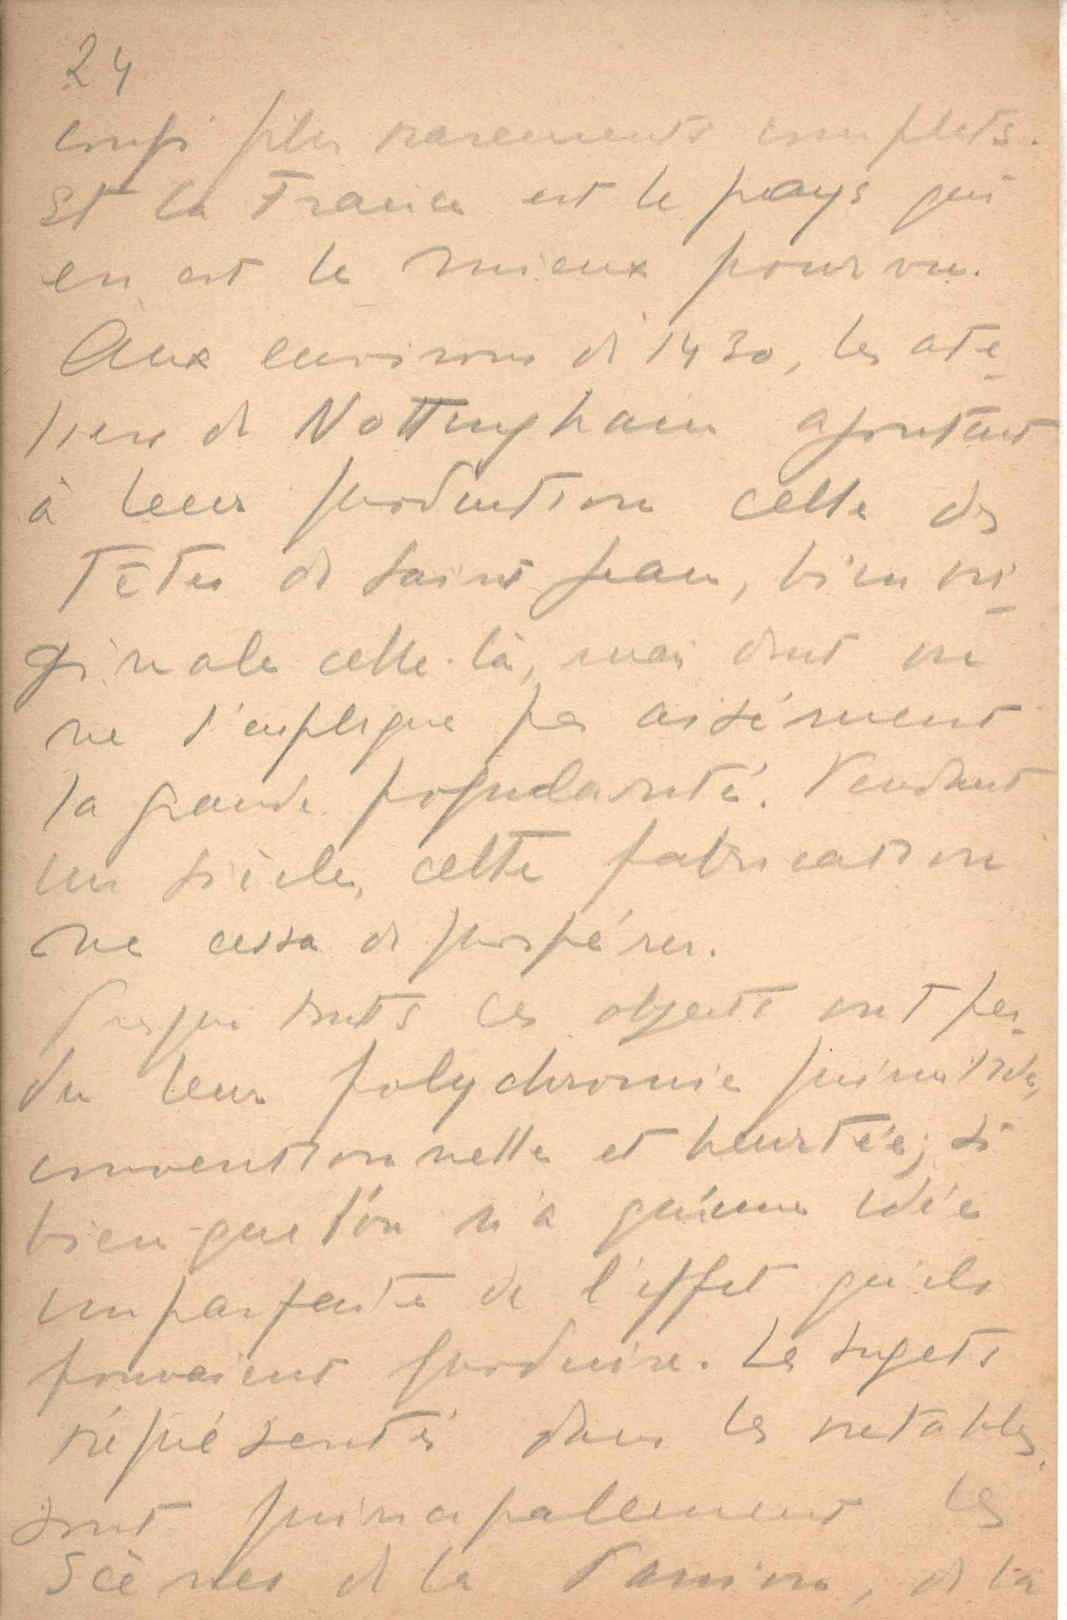 24
coup plus rarements complets.
Et la France est le pays qui
en est le mieux pourvu.
Aux environs de 1430, les ate-
liers de Nottingham ajoutent
à leur production celle des
Têtes de Saint Jean, bien ori-
ginale celle-là, mais dont on
ne s'explique pas aisément
la grande popularité. Pendant
un siècle, cette fabrication
ne cessa de prospérer.
Presque touts ces objects ont per-
du leur polychromie primitive,
conventionnelle et heurtée; si
bien que l'on n'a qu'une idée
imparfaite de l'effet qu'ils
pouvaient produire. Les sujets
réprésentés dans les retables,
sont principallement les
Scènes de la Passion, de la